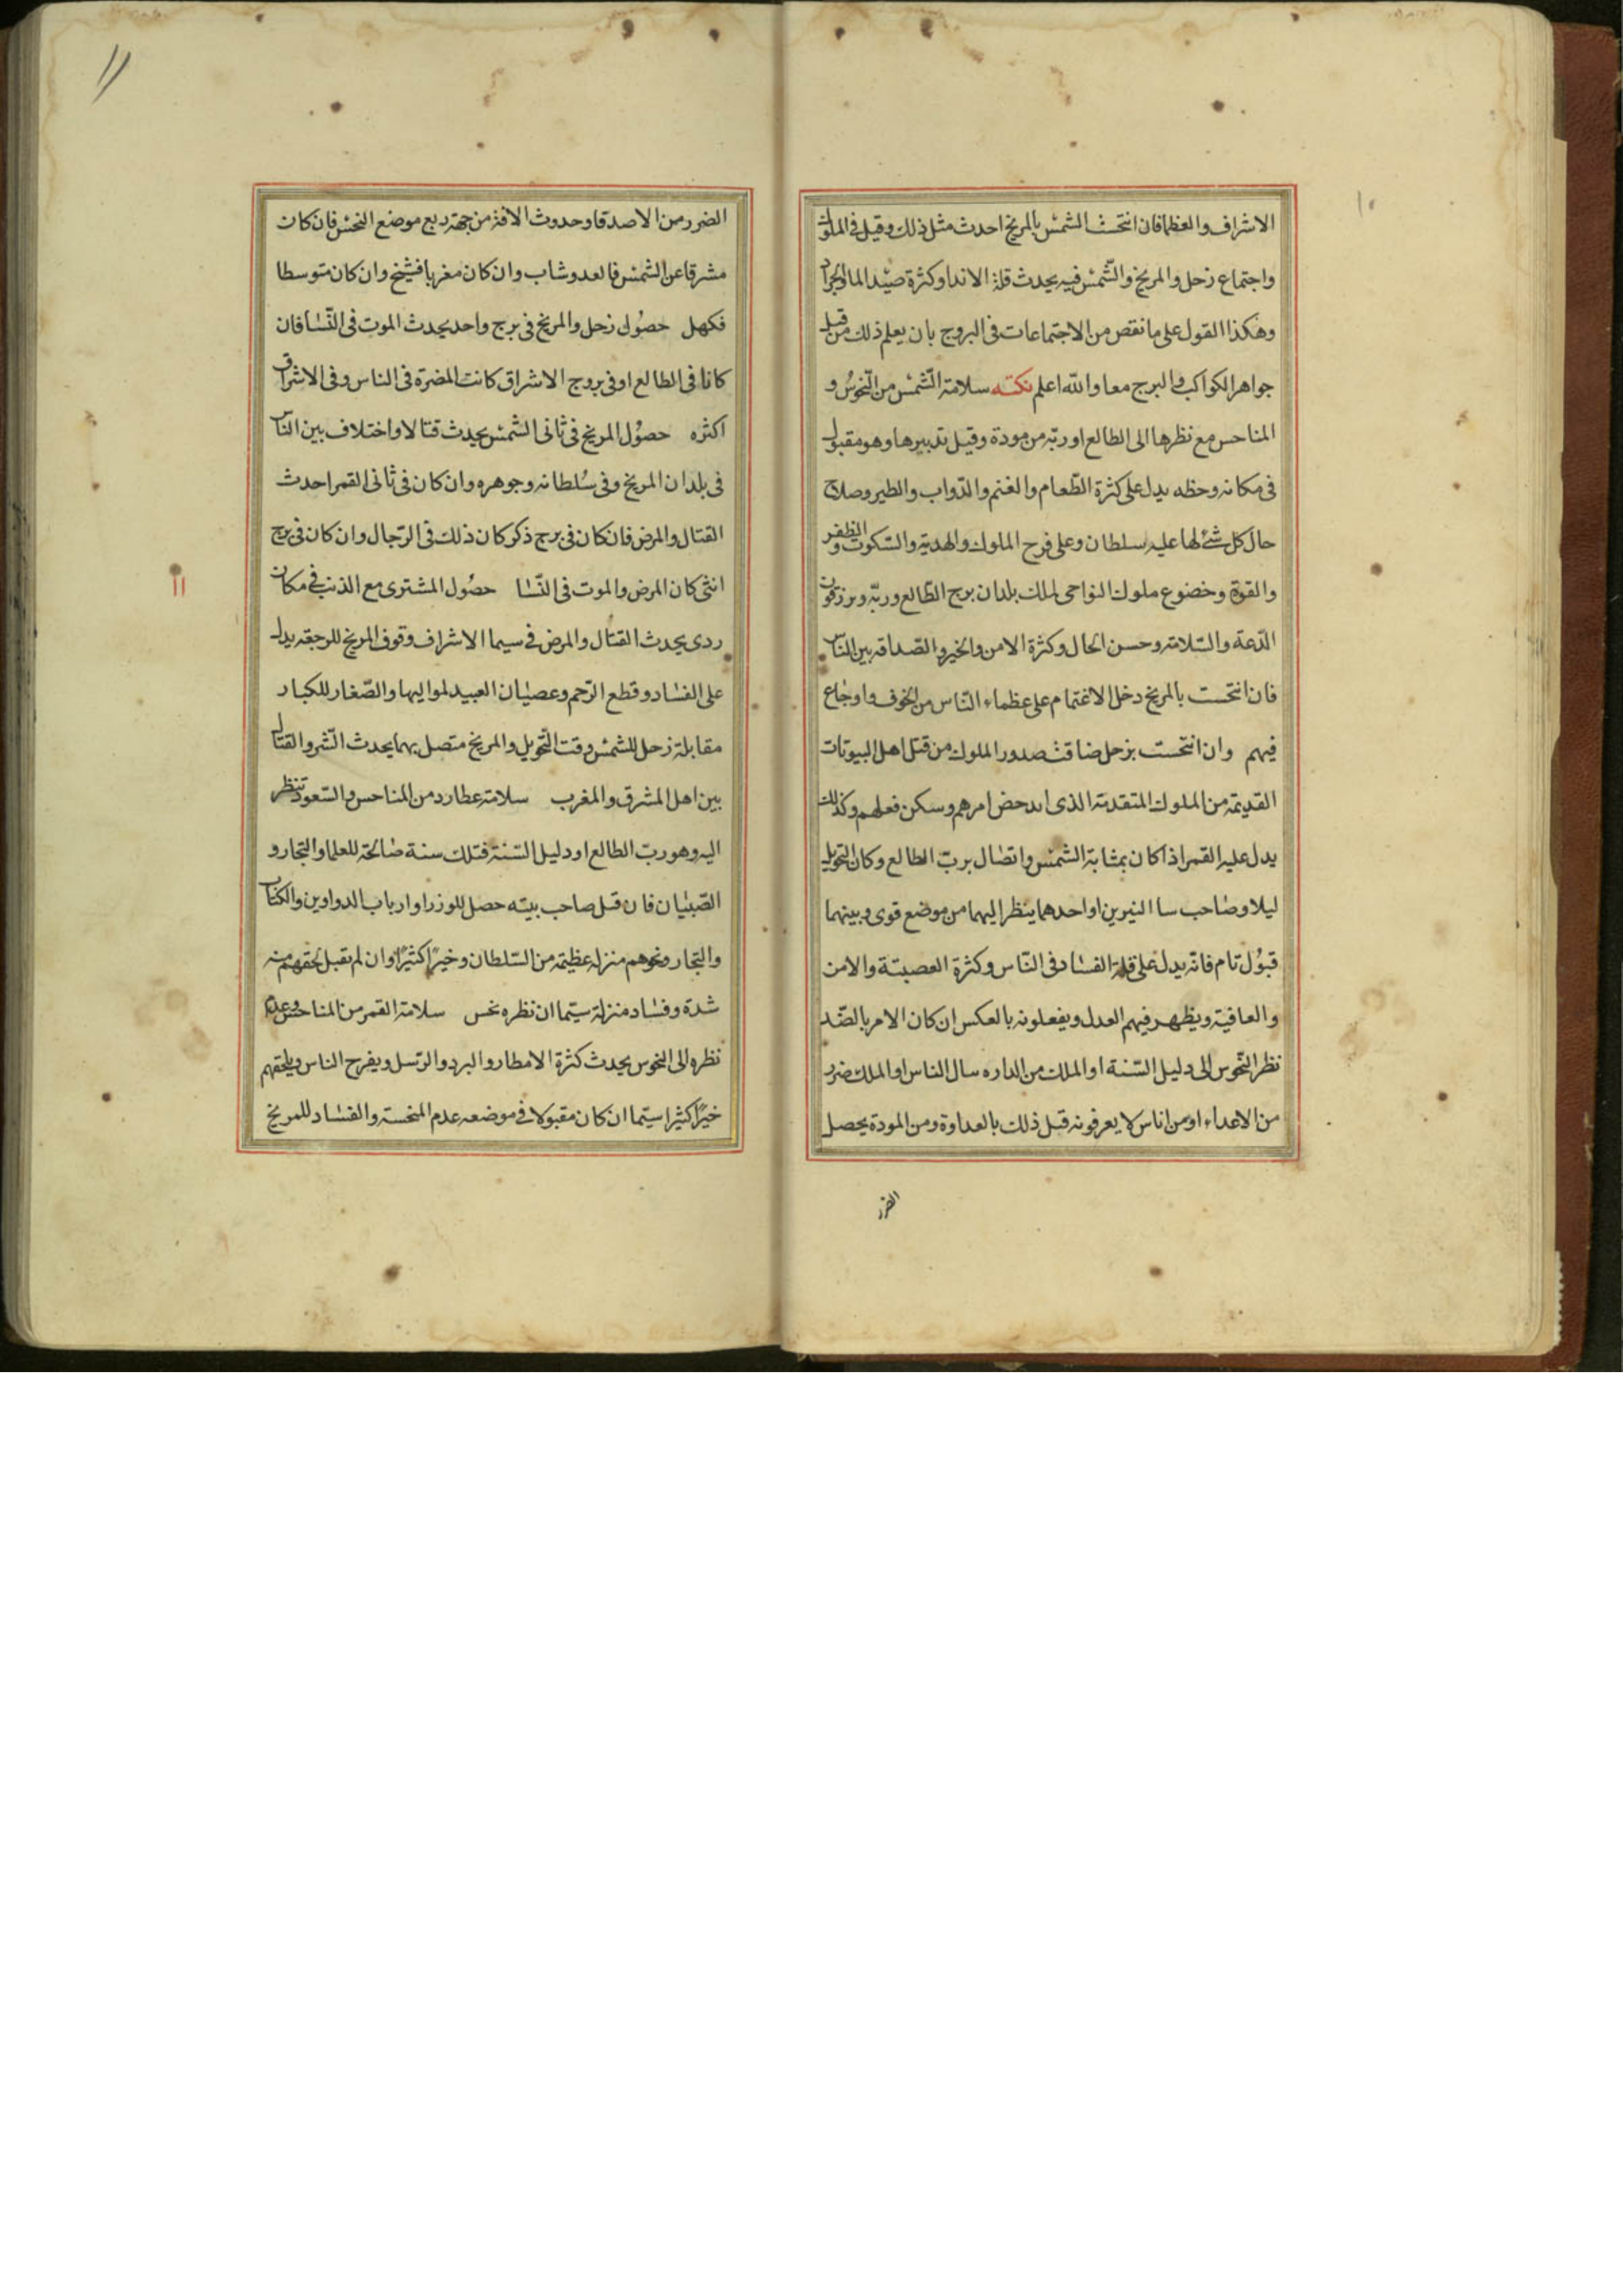 ١٠
الاشراف والعظما فان انتحست الشمس بالمريخ احدث مثل ذلك وقيل فى الملوك
واجتماع زحل والمريخ والشمس فيه يحدث قلة الاندا وكثرة صيد الما والجراد
وهكذا القول على ما نقص من الاجتماعات فى البروج بان يعلم ذلك من قبل
جواهر الكواكب والبرج معا والله اعلم نكته سلامة الشمس من النحوس و
المناحس مع نظرها الى الطالع او ربّه من مودة وقيل تدبيرها وهو مقبول
فى مكانه وحظه يدل على كثرة الطّعام والغنم والدّواب والطير وصلاح
حال كل شئ لها عليه سلطان وعلى فرح الملوك والهدية والسكوت والظفر
والقوة وخضوع ملوك النواحى لملك بلدان برج الطّالع وربّه ويرزقون
الدّعة والسّلامة وحسن الحال وكثرة الامن والخير والصّداقة بين الناس
فان انتحست بالمريخ دخل الاغتمام على عظماء النّاس من الخوف واوجاع
فيهم وان انتحست بزحل ضاقت صدور الملوك من قبل اهل البيوتات
القديمة من الملوك المتقدمة الذى اندحض امرهم وسكن فعلهم وكذلك
يدل عليه القمر اذا كان بمثابة الشمس واتصال بربّ الطالع وكان التحويل
ليلا وصاحب سا النيرين او احدهما ينظر اليهما من موضع قوى وبينهما
قبول تام فانّه يدل على قلة الفساد فى النّاس وكثرة العصبيّة والامن
والعافية ويظهر فيهم العدل ويفعلونه بالعكس ان كان الامر بالضّد
نظر النّحوس الى دليل السّنة او الملك من الداره سال الناس او الملك ضرر
من الاعداء او من اناس لا يعرفونه قبل ذلك بالعداوة ومن المودة يحصل
الضرر
١١
الضرر من الاصدقا وحدوث الافة من جهة ربع موضع النحس فان كان
مشرقا عن الشمس فالعدو شاب وان كان مغربا فشيخ وان كان متوسطا
فكهل حصول زحل والمريخ فى برج واحد يحدث الموت فى النّسا فان
كانا فى الطالع او فى بروج الاشراق كانت المضرة فى الناس وفى الاشراق
اكثره حصول المريخ فى ثانى الشمس يحدث قتالا واختلاف بين الناس
فى بلدان المريخ وفى سلطانه وجوهره وان كان فى ثانى القمر احدث
القتال والمرض فان كان فى برج ذكر كان ذلك فى الرّجال وان كان فى برج
انثى كان المرض والموت فى النّسا حصول المشترى مع الذنب فى مكان
١١
ردى يحدث القتال والمرض فى سيما الاشراف وقوف المريخ للرجعة يدل
على الفساد وقطع الرّحم وعصيان العبيد لمواليها والصّغار للكبار
مقابلة زحل للشمس وقت التّحويل والمريخ متصل بهما يحدث الشّر والقتال
بين اهل المشرق والمغرب سلامة عطارد من المناحس والسّعود تنظر
اليه وهو ربّ الطالع او دليل السّنة فتلك سنة صالحة للعلما والتجار و
الصّبيان فان قبل صاحب بيته حصل للوزرا وارباب الدواوين والكتاب
والتجار ونحوهم منزلة عظيمة من السّلطان وخيرًا كثيرًا وان لم يقبل لحقهم منه
شدة وفساد منزلة سيّما ان نظره نحس سلامة القمر من المناحس وعدم
نظره الى النحوس يحدث كثرة الامطار والبرد والرّسل ويفرح الناس ويلحقهم
خيرًا كثيرا سيّما ان كان مقبولا فى موضعه عدم المنحسة والفساد للمريخ